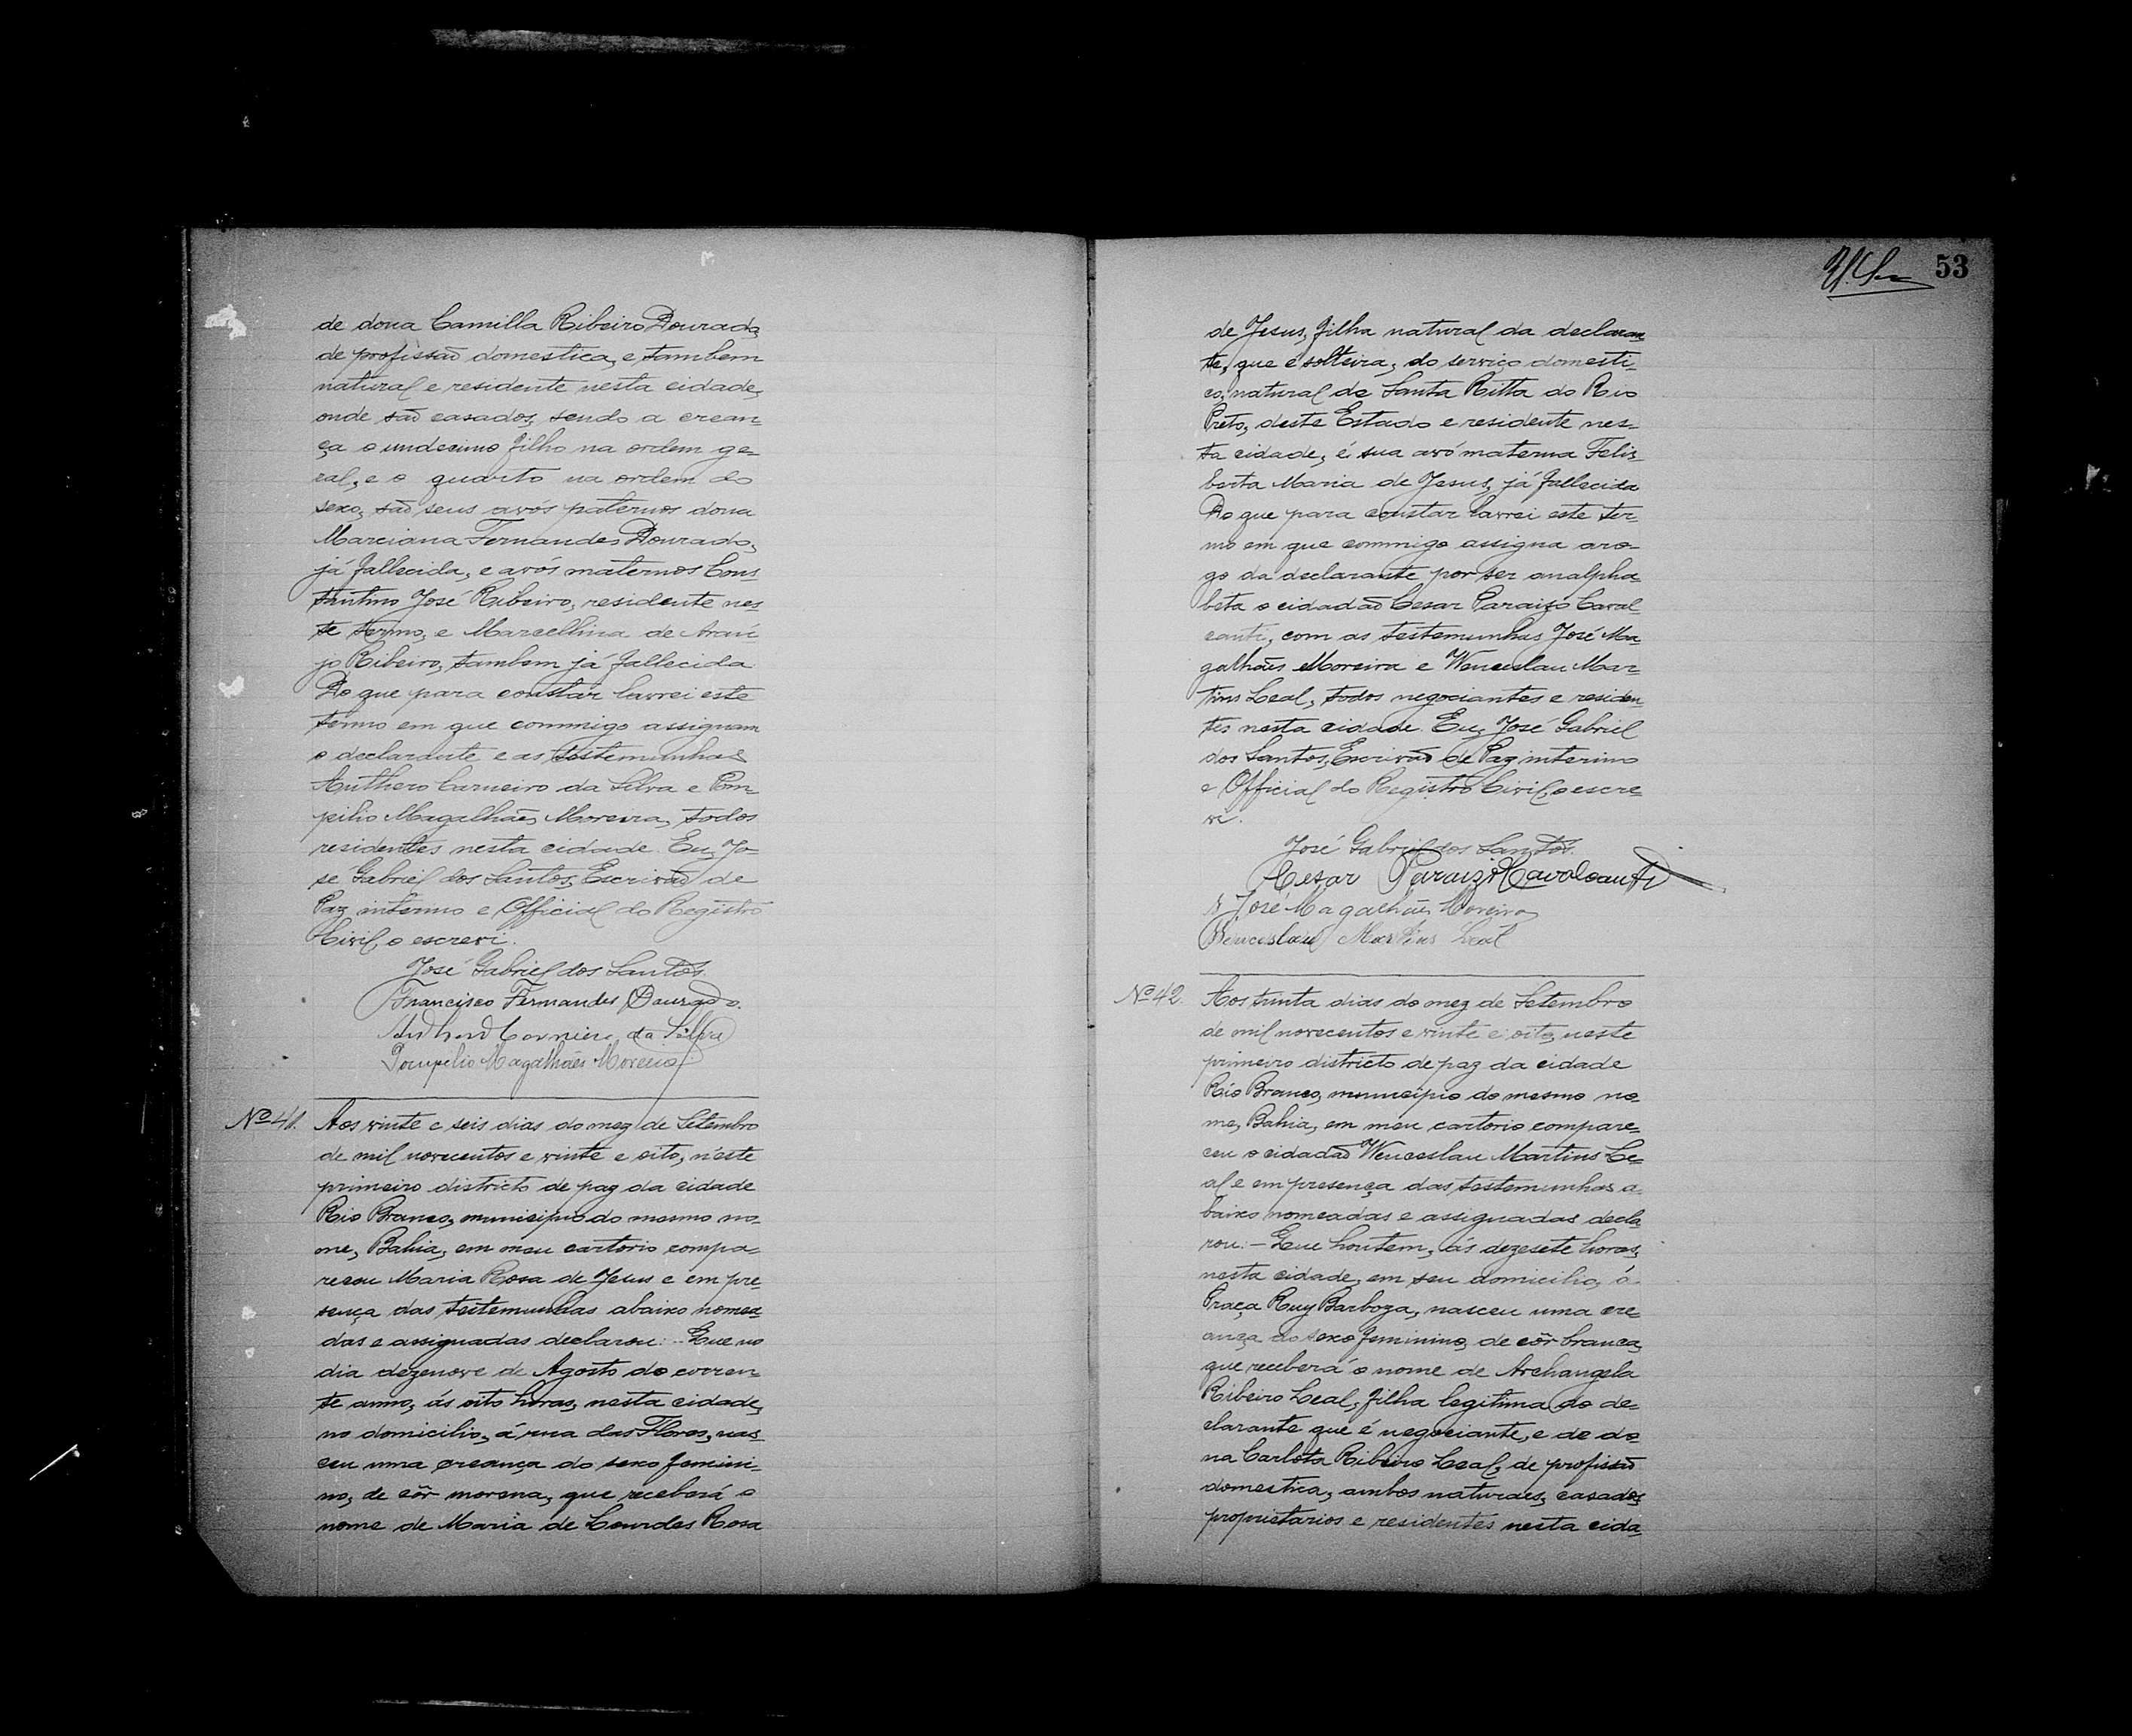 de dona Camilla Ribeiro Dourado,
de profissaõ domestica, e tambem
natural e residente nesta cidade,
onde saõ casados, sendo a crean-
ça o undecimo filho na ordem ge-
ral, e o quarto na ordem do
sexo, saõ seus avós paternos dona
Marciana Fernandes Dourado,
já fallecida, e avós maternos Cons-
tantino José Ribeiro, residente nes-
te termo, e Marcellina de Arau-
jo Ribeiro, tambem já fallecida.
Do que para constar lavrei este
termo em que commigo assignam
o declarante e as testemunhas
Anthero Carneiro da Silva e Pom-
pilio Magalhães Moreira, todos
residentes nesta cidade. Eu, Jo-
se Gabriel dos Santos, Escrivaõ de
Paz interino e Official do Registro
Civil, o escrevi.
José Gabriel dos Santos.
Francisco Fernandes Dourado.
Anthero Carneiro da Silva
Pompilio Magalhães Moreira
Nº 41. Aos vinte e seis dias do mez de Setembro
de mil novecentos e vinte e oito, n'este
primeiro districto de paz da cidade
Rio Branco, municipio do mesmo no-
me, Bahia, em meu cartorio compa-
receu Maria Rosa de Jesus e em pre-
sença das testemunhas abaixo nomea-
das e assignadas declarou: - Que no
dia dezenove de Agosto do corren-
te anno, ás oito horas, nesta cidade,
no domicilio, á rua das Flores, nas-
ceu uma creança do sexo femini-
no, de côr morena, que receberá o
nome de Maria de Lourdes Rosa
53
de Jesus, filha natural da declaran-
te, que é solteira, do serviço domesti-
co, natural de Santa Ritta do Rio
Preto, deste Estado e residente nes-
ta cidade, é sua avó materna Felis-
berta Maria de Jesus, já fallecida
Do que para constar lavrei este ter-
mo em que commigo assigna aro-
go da declarante por ser analpha-
beta o cidadaõ Cesar Paraizo Caval-
canti, com as testemunhas José Ma-
galhães Moreira e Wenceslau Mar-
tins Leal, todos negociantes e residen-
tes nesta cidade. Eu, José Gabriel
dos Santos, Escrivaõ de Paz interino
e Official do Registro Civil, o escre-
vi.
José Gabriel dos Santos.
Cesar Paraizo Cavalcanti
José Magalhães Moreira
Wenceslau Martins Leal
Nº 42. Aos trinta dias do mez de Setembro
de mil novecentos e vinte e oito, neste
primeiro districto de paz da cidade
Rio Branco, municipio do mesmo no-
me, Bahia, em meu cartorio compare-
ceu o cidadaõ Wenceslau Martins Le-
al e em presença das testemunhas a-
baixo nomeadas e assignadas decla-
rou: - Que hontem, ás dezesete horas,
nesta cidade, em seu domicilio, á
Praça Ruy Barboza, nasceu uma cre-
ança do sexo feminino, de côr branca,
que receberá o nome de Archangela
Ribeiro Leal, filha legitima do de-
clarante que é negociante, e de do-
na Carlota Ribeiro Leal, de profissaõ
domestica, ambos naturaes, casados,
proprietarios e residentes nesta cida-